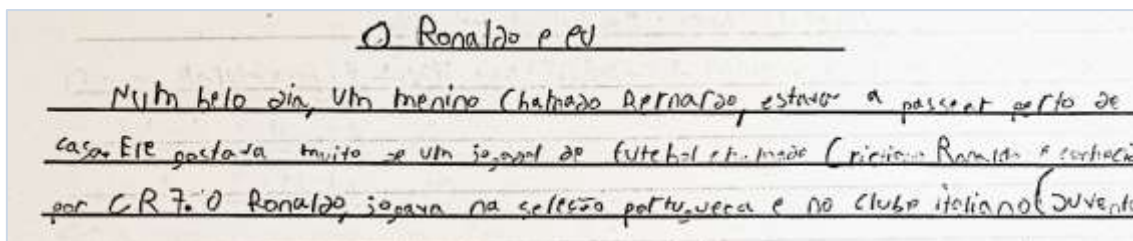 O Ronaldo e eu
Num belo dia, um menino chamado Bernardo, estava a passear perto de
casa. Ele gostava muito de um jogador de futebol chamado Cristiano Ronaldo e conheci
por CR7. O Ronaldo, jogava na seleção portuguesa e no clube italiano (Juvent